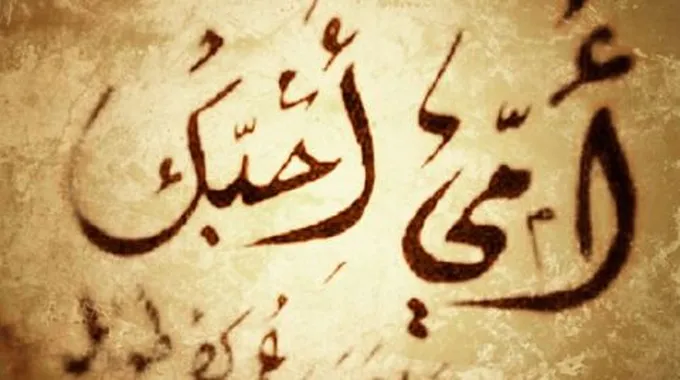 أُمّي أُحبّكُ